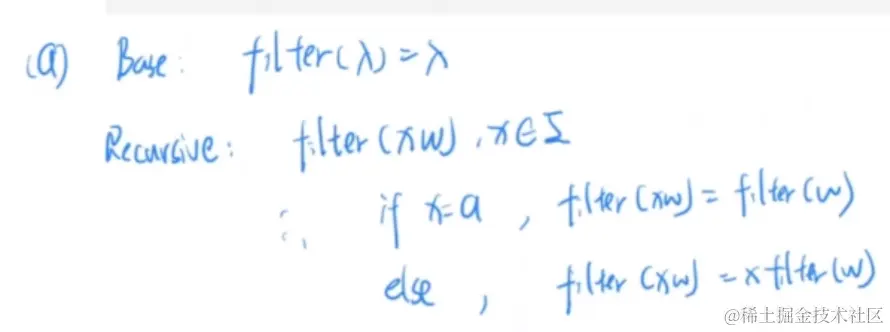 (a) Base: filter(λ)=λ
Recursive: filter(xw), x∈Σ
∴ if x=a, filter(xw)=filter(w)
else, filter(xw)=xfilter(w)
@稀土掘金技术社区